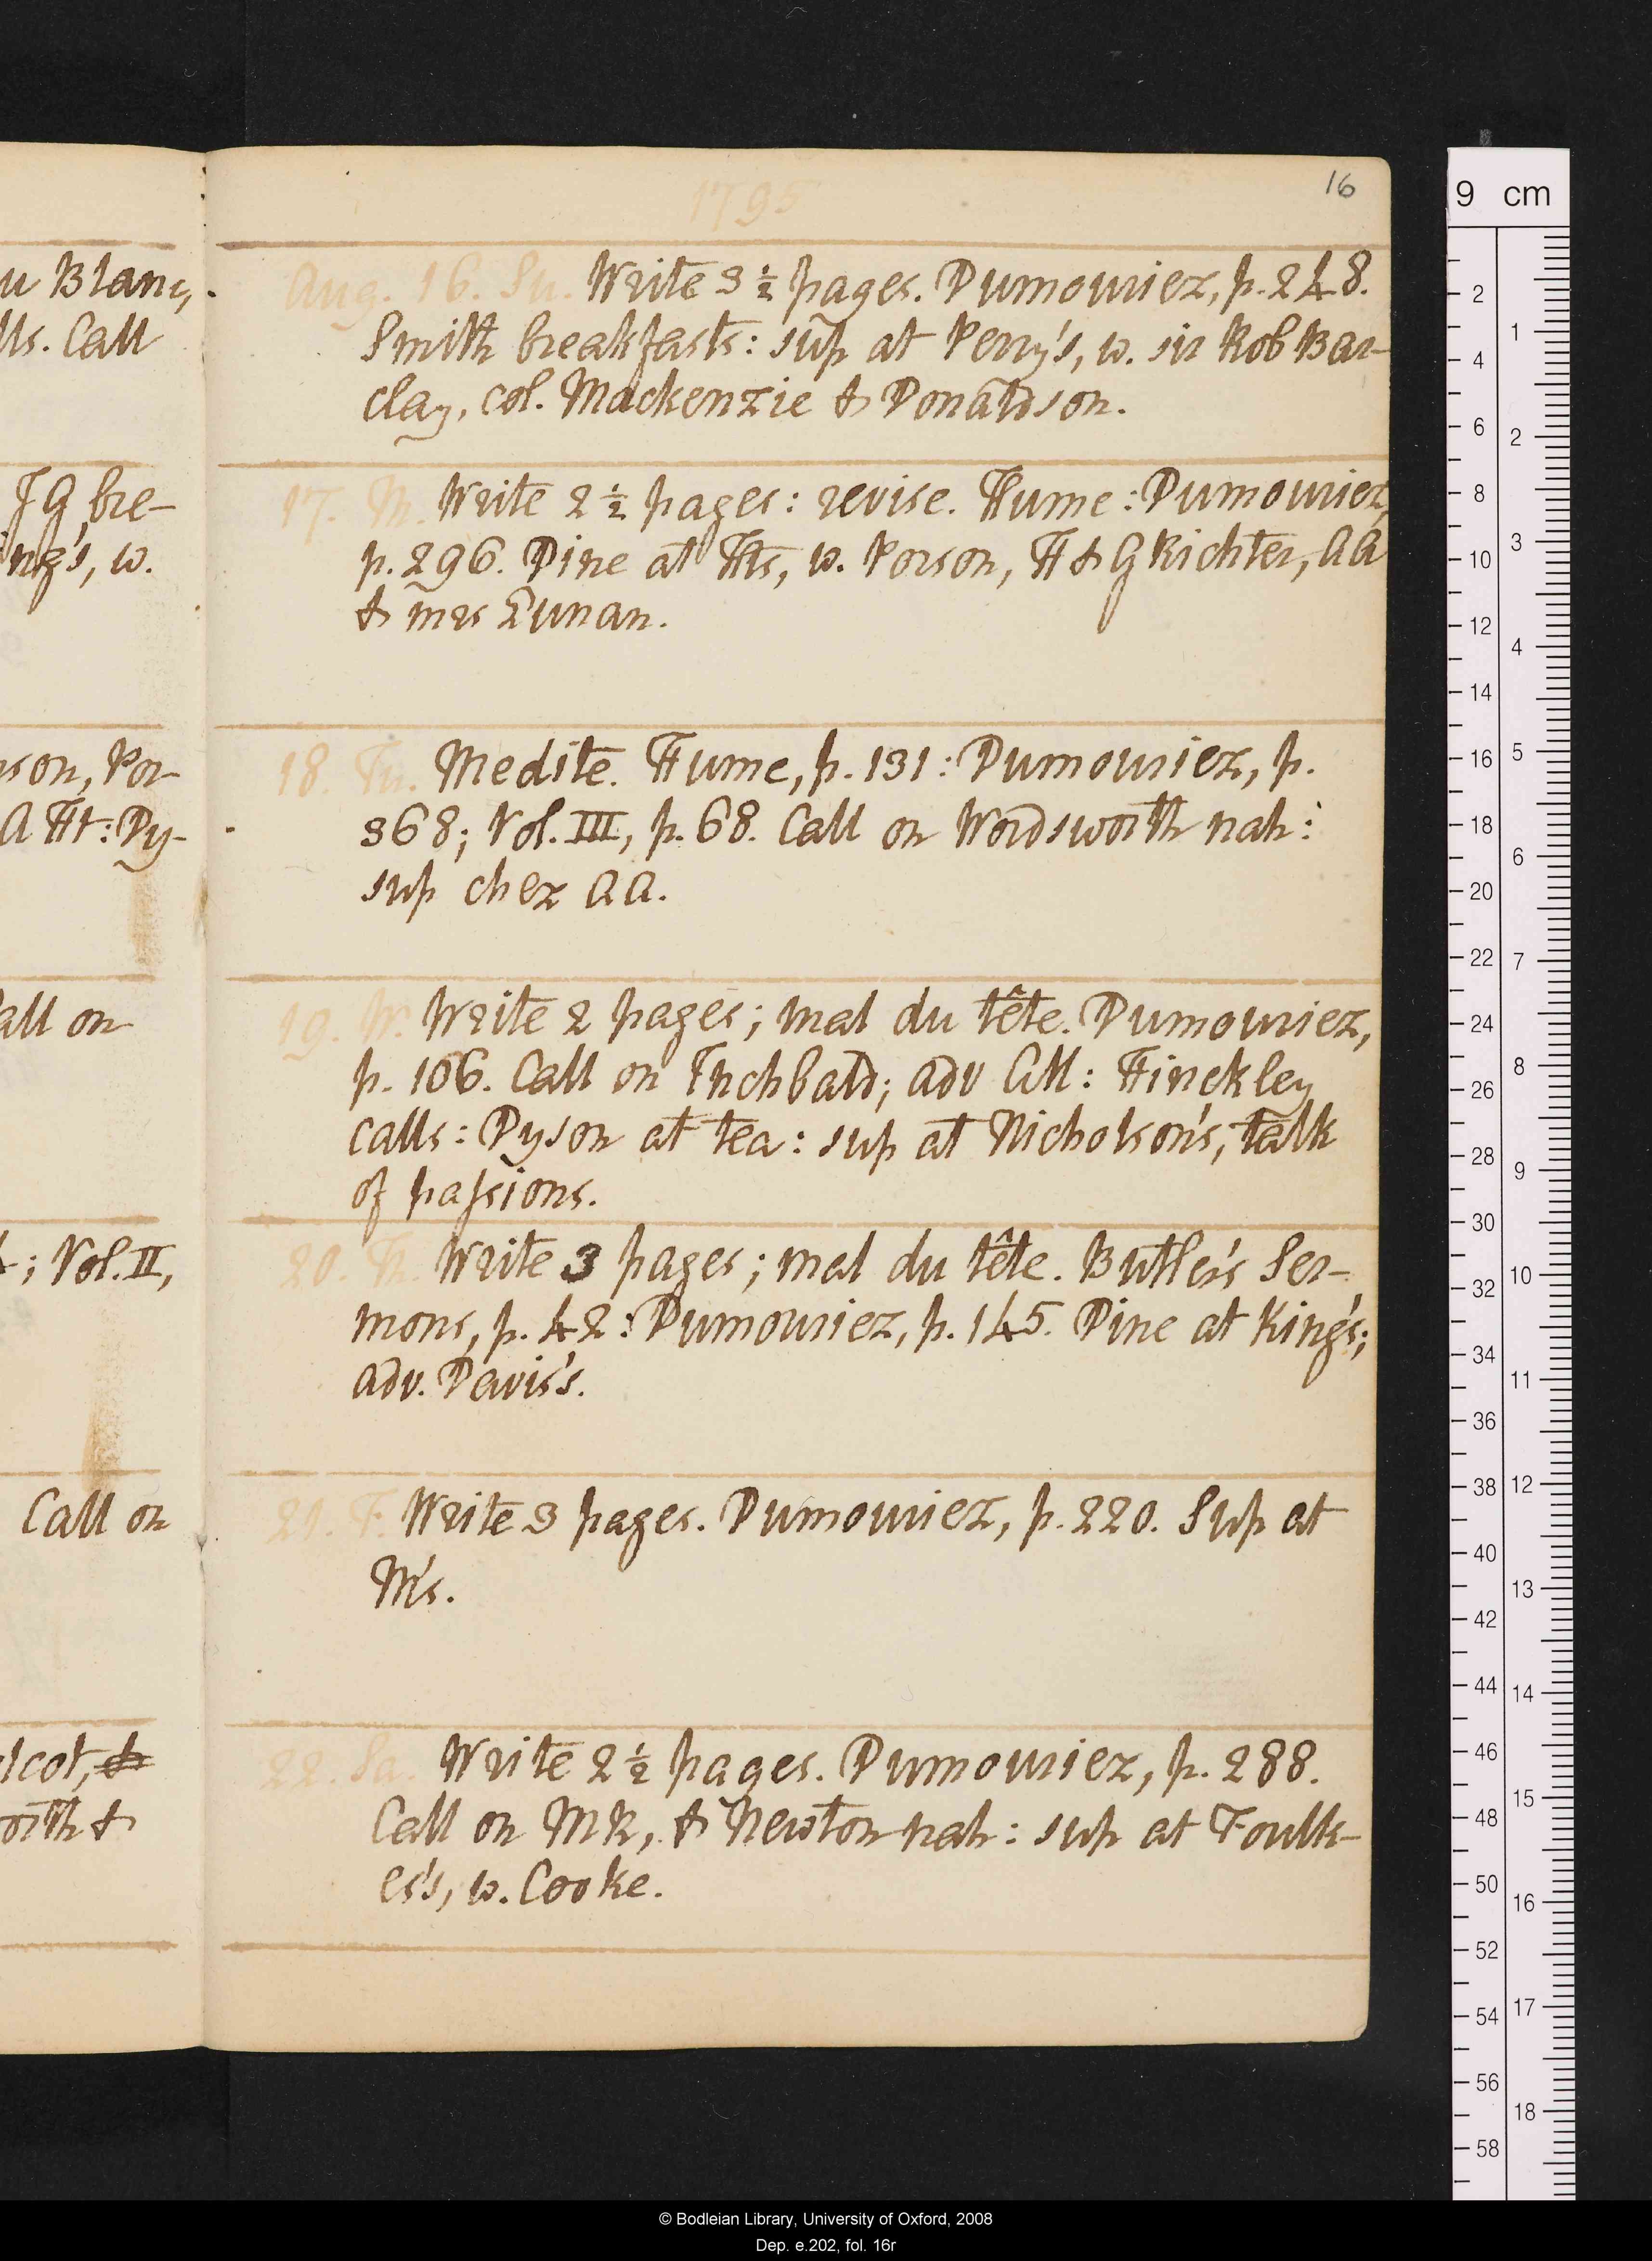 u Blanc,
lls. Call
JG bre-
ing's, w.
son, Por-
A Ht: Dy-
all on
; Vol. II,
Call on
lcot, &
orth &
1795
16
Aug. 16. Su. Write 3 ½ pages. Dumouriez, p. 248.
Smith breakfasts: sup at Perry's, w. sir Rob Bar-
clay, col. Mackenzie & Donaldson.
17. M. Write 2 ½ pages: revise. Hume: Dumouriez,
p. 296. Dine at Hts, w. Porson, H & G Richter, AA
& mrs Lunan.
18. Tu. Medite. Hume, p. 131: Dumouriez, p.
368; Vol. III, p. 68. Call on Wordsworth nah:
sup chez AA.
19. W. Write 2 pages; mal du tête. Dumouriez,
p. 106. Call on Inchbald; adv Mt: Hinckley
calls: Dyson at tea: sup at Nicholson's; talk
of passions.
20. Th. Write 3 pages; mal du tête. Butler's Ser-
mons, p. 42: Dumouriez, p. 145. Dine at King's;
adv. Davis's.
21. F. Write 3 pages. Dumouriez, p. 220. Sup at
M's.
22. Sa. Write 2 ½ pages. Dumouriez, p. 288.
Call on MR, & Newton nah: sup at Foulk-
es's, w. Cooke.
9 cm
2
4
6
8
10
12
14
16
18
20
22
24
26
28
30
32
34
36
38
40
42
44
46
48
50
52
54
56
58
1
2
3
4
5
6
7
8
9
10
11
12
13
14
15
16
17
18
© Bodleian Library, University of Oxford, 2008
Dep. e.202, fol. 16r